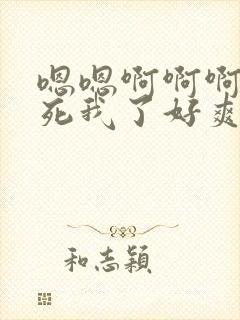 嗯嗯啊啊啊
死我了好爽
和志颖